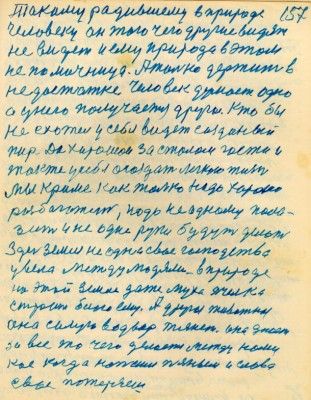 157
Такому радившему в природе
человеку он того чего другие видят
не видет и ему природа в этом
не помощница. А только держит в
недостатке человек думает одно
а у него получается другое. Кто бы
не хотел у себя видет созданый
пир. Да хорошо за столом гости и
также у себя создат легкую жизн
Мы кроме как только надо хорошо
надо не одному
и не одне руки будут делат
Здес земля не одна свое господства
увела между людями. в природе
на этой земле даже муха ячейка
строит било ему. А другое животны
она самую тянет. она знает
за все то чего делает между нами
кое когда пянеем и слова
свое потеряеш